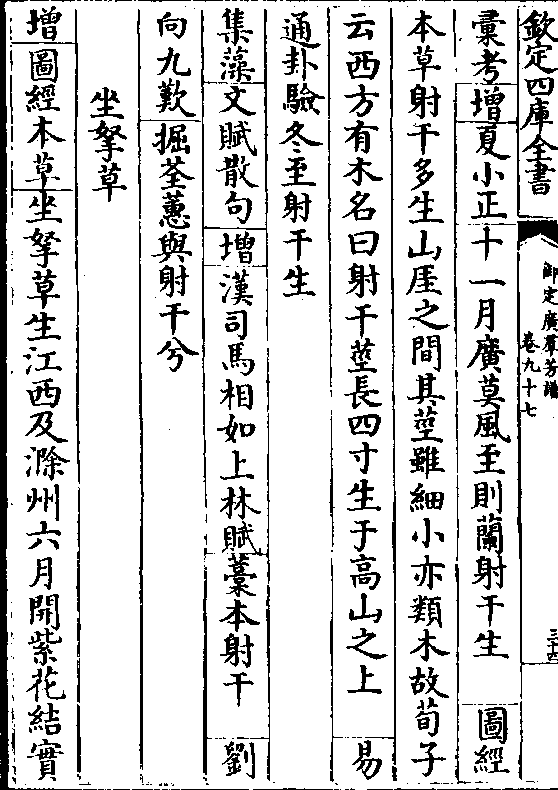 欽定四庫全書
御定廣羣芳譜
卷九十七
三十四
彙考增夏小正十一月廣莫風至則蘭射干生 圖經
本草射干多生山厓之間其莖雖細小亦類木故荀子
云西方有木名曰射干莖長四寸生于高山之上 易
通卦驗冬至射干生
集藻文賦散句增漢司馬相如上林賦藁本射干 劉
向九歎掘荃蕙與射干兮
坐拏草
增圖經本草坐拏草生江西及滁州六月開紫花結實